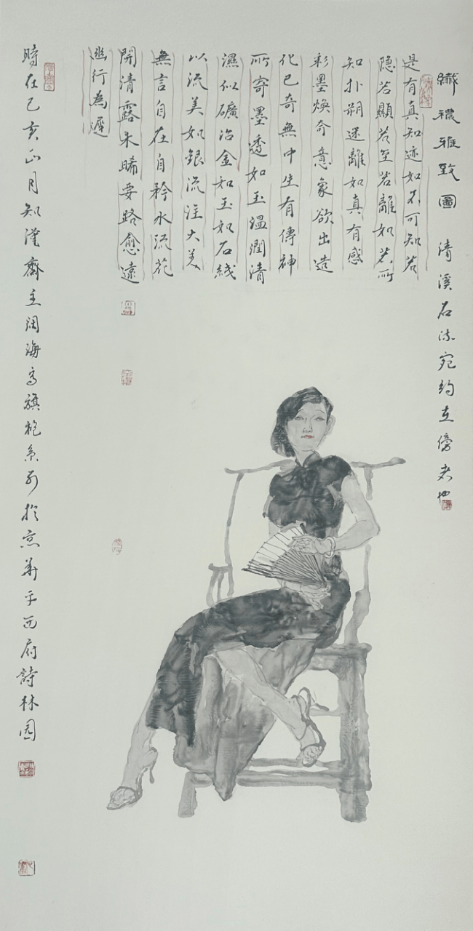 纖襪雅致圖 清溪石流宛約在傍者也
是有真知迹如不可知若
隱若顯若至若離如若所
知扑朔迷離如真有感
彩墨焕兮意象欲出造
化已奇無中生有傳神
所寄墨透如玉溫潤清
濕似礦冶金如玉如石綫
以流美如銀流注大美
無言自在自矜水流花
開清露未晞要路愈遠
幽行為遲
時在乙亥正月知漢齋主闊海高旗袍系列於京華平西府詩林園